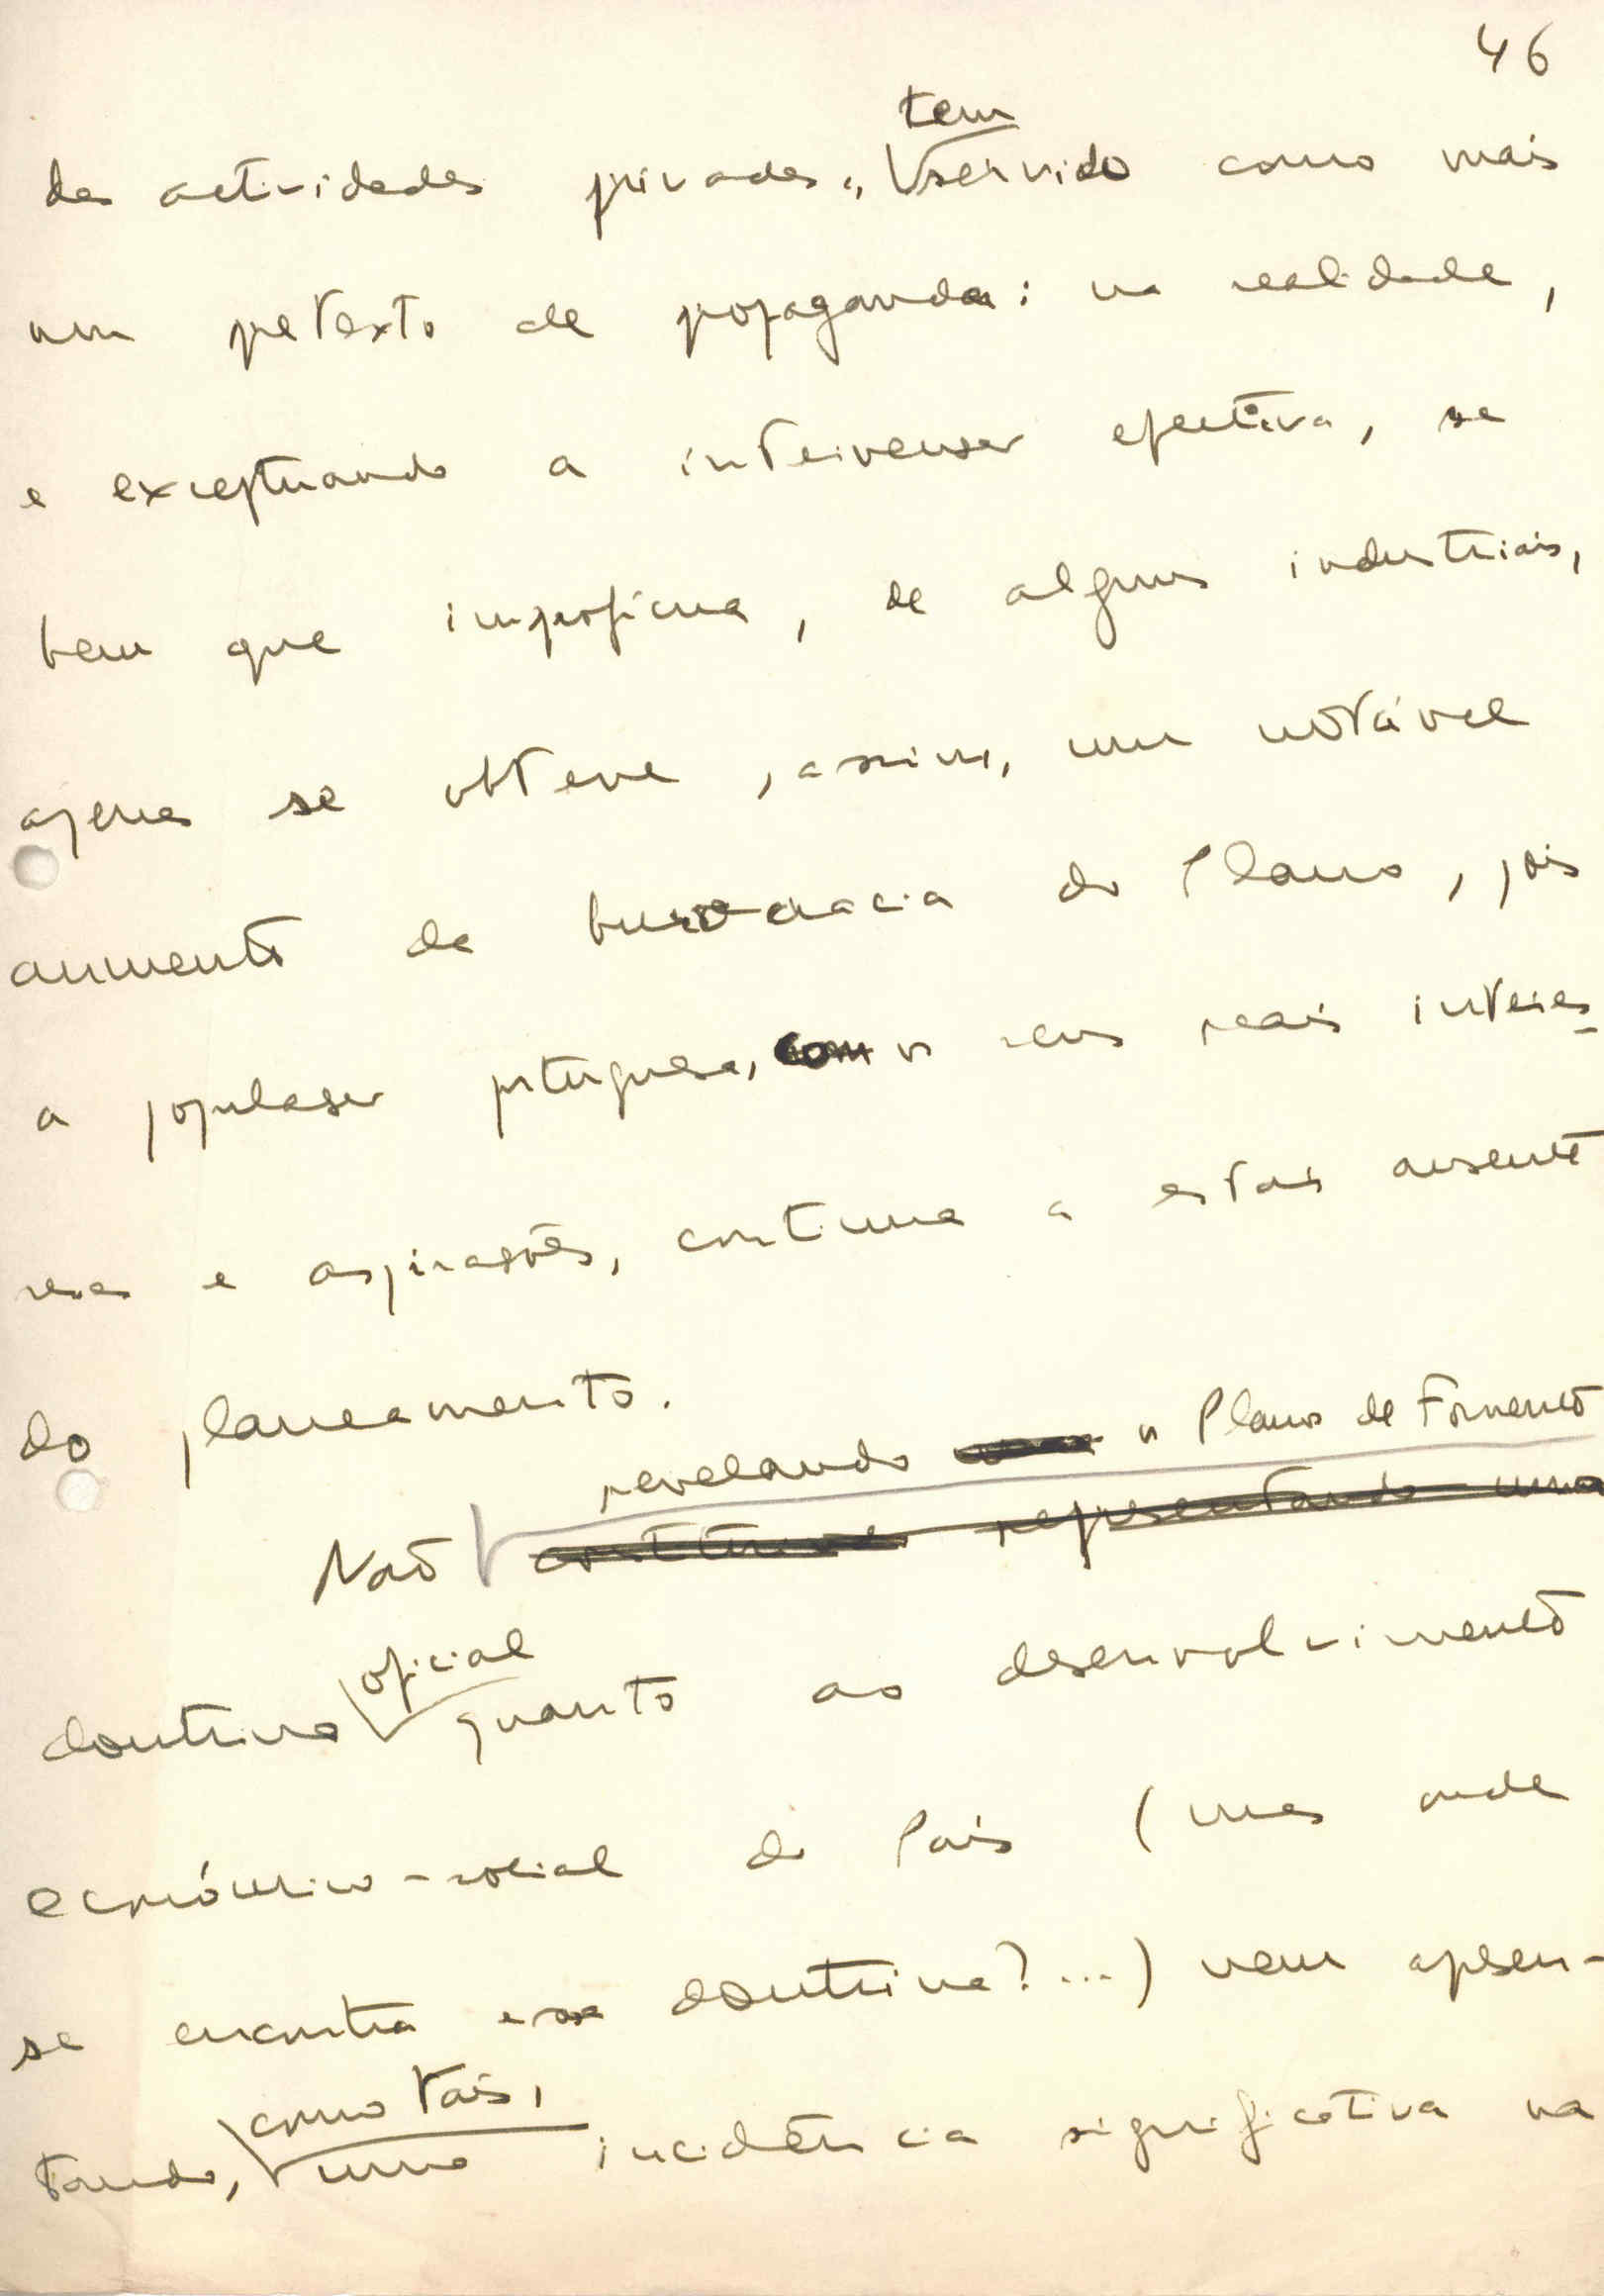 46
tem
das actividades privadas", servido como mais
um pretexto de propaganda: na realidade,
e exceptuando a intervenção efectiva, se
bem que improfícua, de alguns industriais,
apenas se obteve, assim, um notável
aumento da burocracia do Plano, pois
a população portuguesa, com os seus reais interes-
ses e aspirações, continua a estar ausente
do planeamento.
revelando o Plano de Fomento
Não constituindo representando uma
oficial
doutrina quanto ao desenvolvimento
económico-social do País (mas onde
se encontra essa doutrina?...) vem apresen-
como tais,
tando, uma incidência significativa na